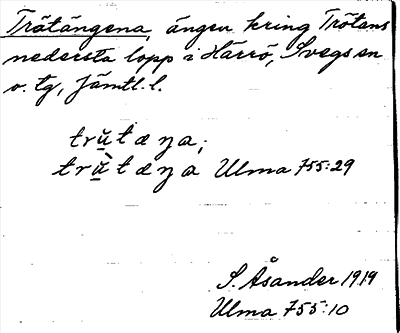 Trätängena, ängen kring Trötans
nedersta lopp i Härrö, Svegs sn
o. tg, Jämtl. l.
trŭtæŋa;
trŭ̀tæŋa Ulma 755:29
S. Åsander 1919
Ulma 755:10